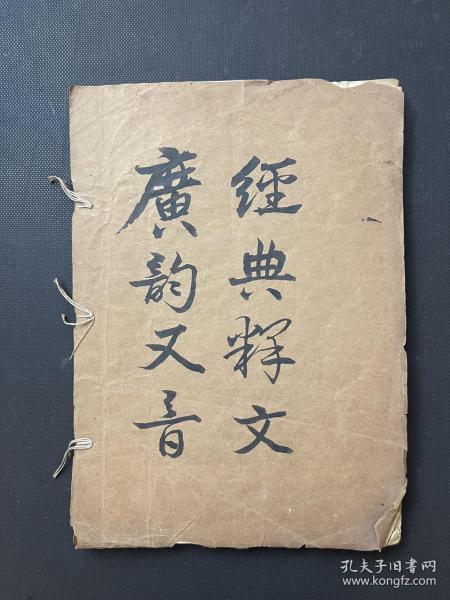 經典釋文
廣韵又音
孔夫子旧书网
www.kongfz.com